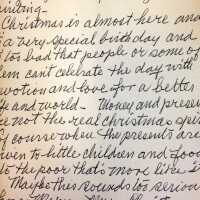 writing-
Christmas is almost here and
a very special birthday and
too bad that people or some of
em can't celebrate the day with
evotion and love for a better
fe and world- Money and presen
re not the real christmas spir
Of course when the presents are
ven to little children and food
to the poor that's more like i
Maybe this sounds too seriou